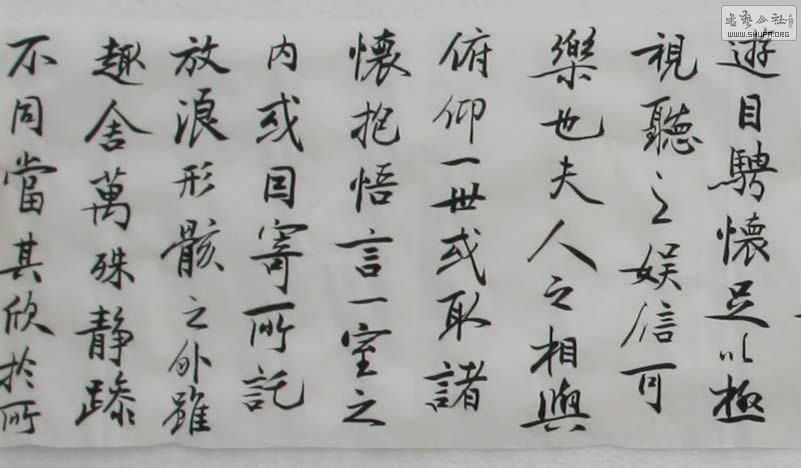 遊目騁懷足以極
視聽之娛信可
樂也夫人之相與
俯仰一世或取諸
懷抱悟言一室之
内或因寄所託
放浪形骸之外雖
趣舍萬殊静躁
不同當其欣於所
书艺公社
WWW.SHUFA.ORG